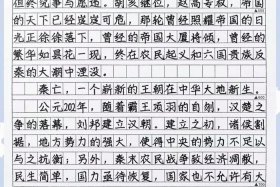 但终究事与愿违。胡亥继位，赵高专权，帝国
的天下已经岌岌可危，那轮曾经照耀帝国的日
光正徐徐落下，曾经的帝国大厦将倾，曾经的
繁华如昙花一现，终在农民起义和六国贵族反
秦的大潮中湮没。
秦亡，一个崭新的王朝在中华大地新生。
公元202年，随着霸王项羽的自刎，汉楚之
争的落幕，刘邦建立汉朝。建立之初，诸侯割
据，地方势力的强大，使得中央的势力不足以
与之抗衡；另外，秦末农民战争致经济凋敝，
民生简单，国力亟待恢复，国家也不允许有大